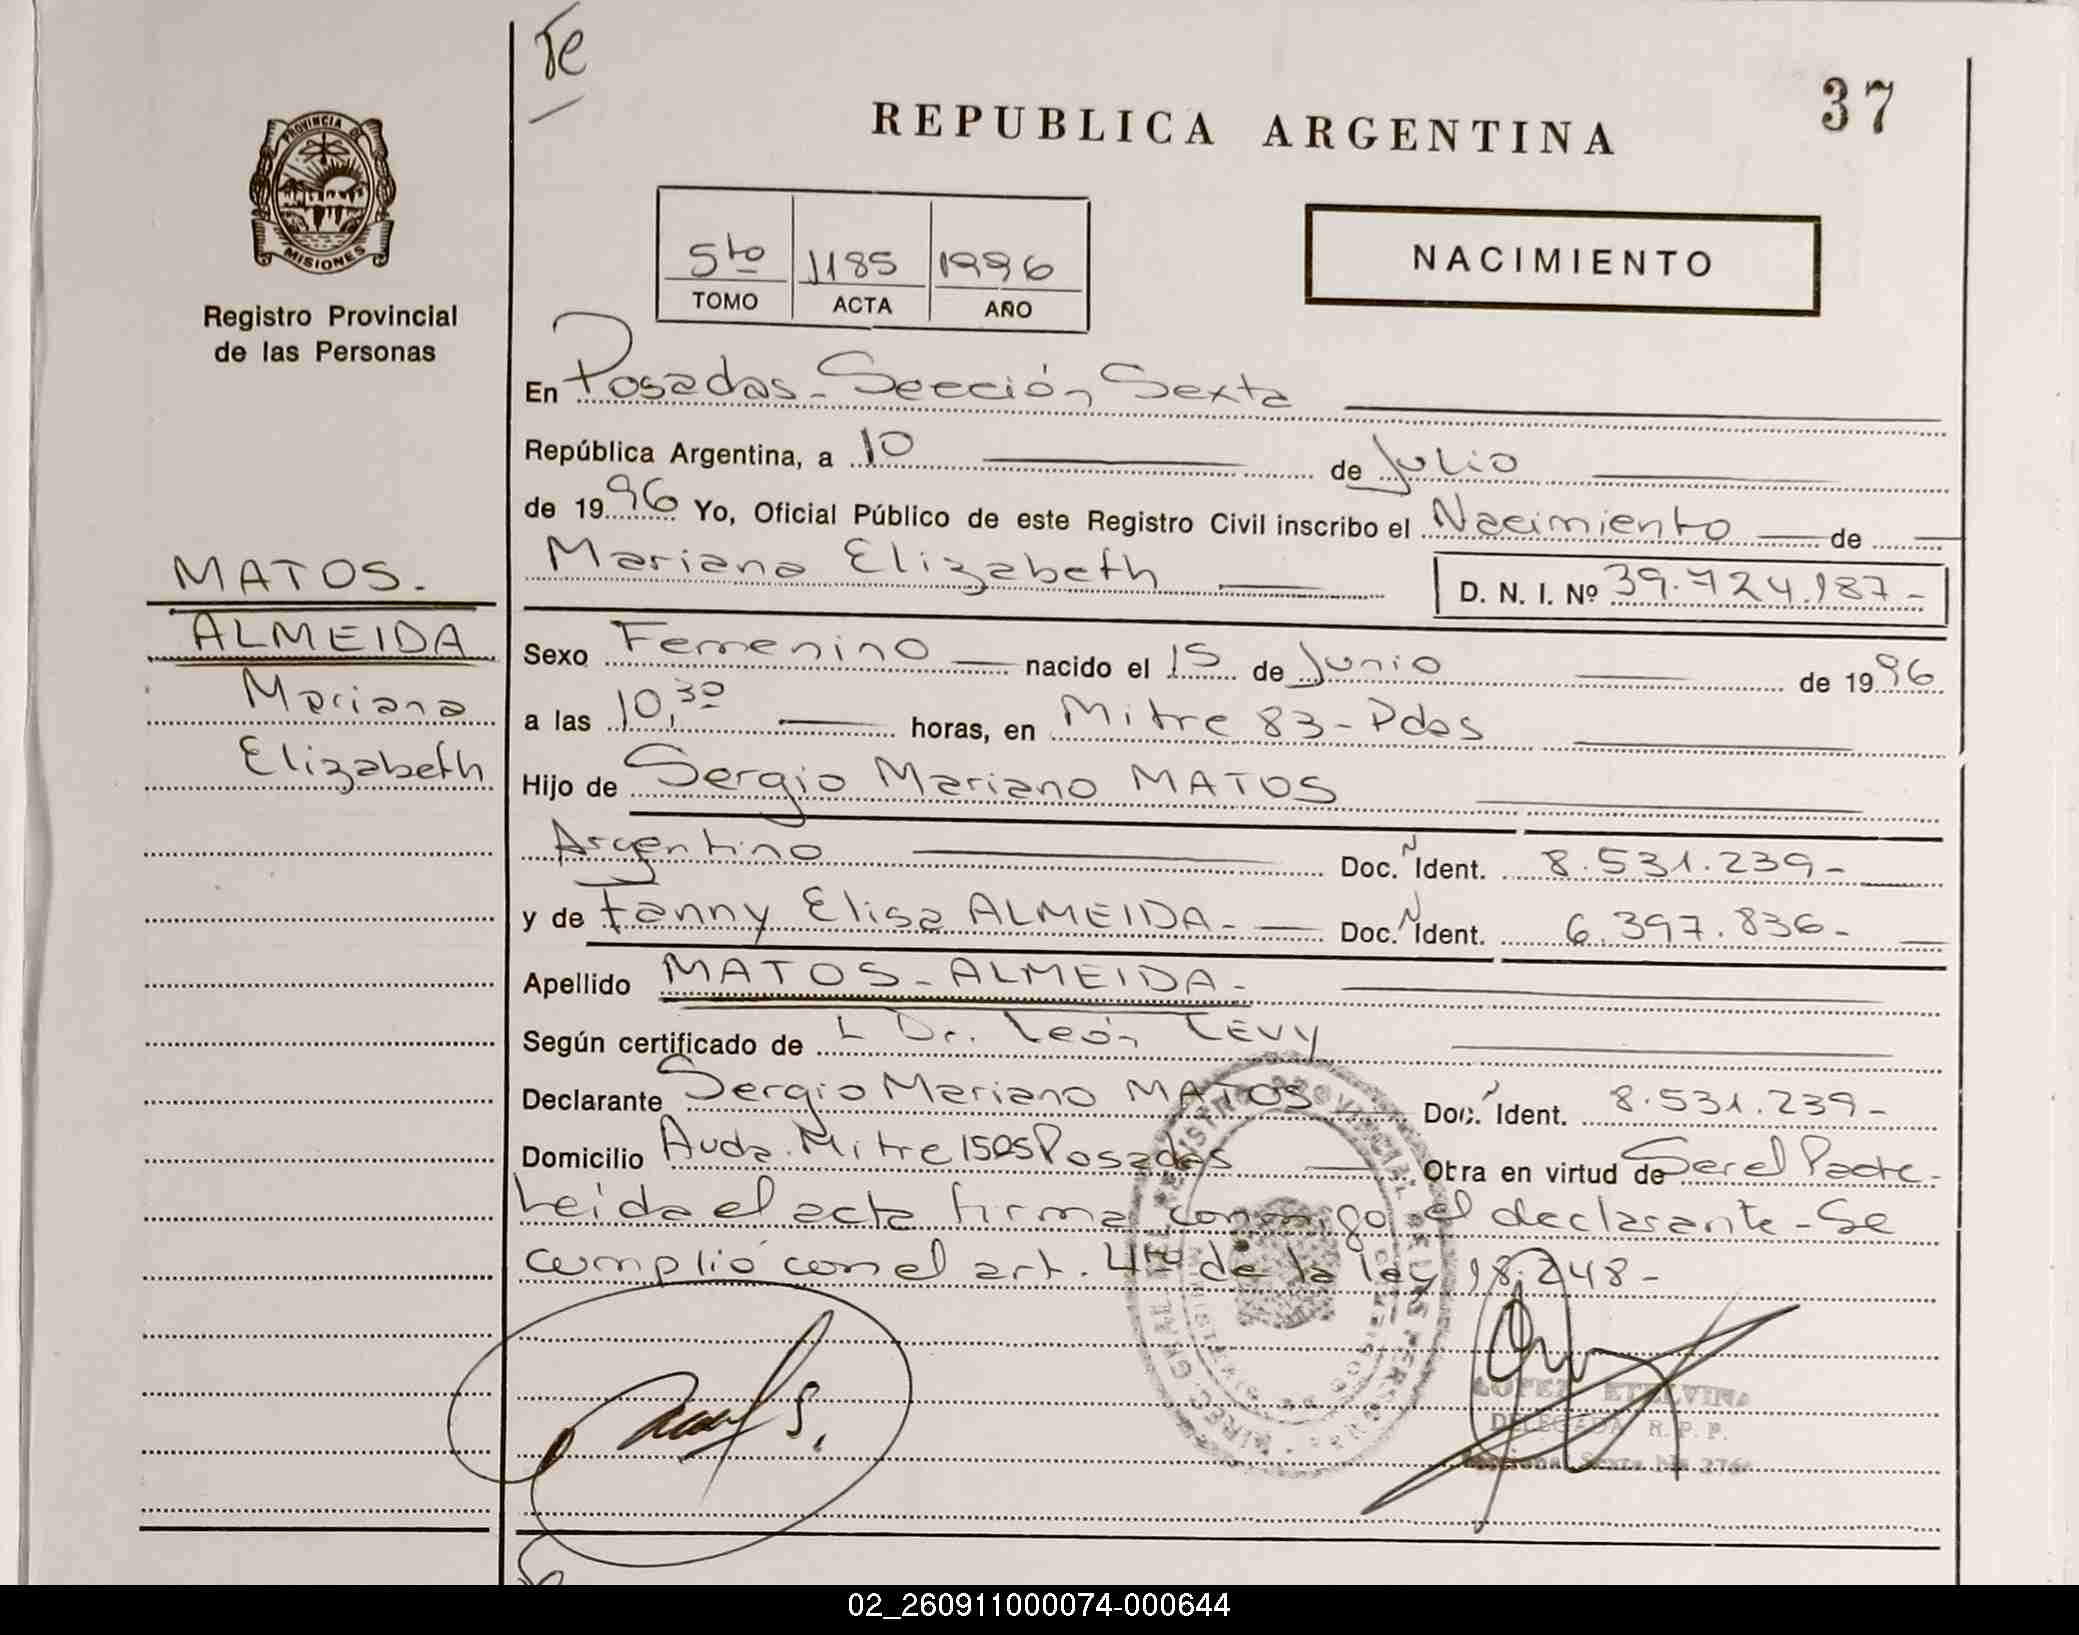 37
REPUBLICA ARGENTINA
PROVINCIA DE
MISIONES
Registro Provincial
de las Personas
5to 1185 1996
TOMO ACTA AÑO
NACIMIENTO
En Posadas - Sección Sexta
República Argentina, a 10 de Julio
de 1996 Yo, Oficial Público de este Registro Civil inscribo el Nacimiento de
Mariana Elizabeth D. N. I. Nº 39.724.187-
MATOS.
ALMEIDA
Mariana
Elizabeth
Sexo Femenino nacido el 15 de Junio de 1996
a las 10,30 horas, en Mitre 83 - Pdas
Hijo de Sergio Mariano MATOS
Argentino Doc. N Ident. 8.531.239-
y de Fanny Elisa ALMEIDA - Doc. N Ident. 6.397.836-
Apellido MATOS - ALMEIDA -
Según certificado de L Dr. León LEVY
Declarante Sergio Mariano MATOS Doc. Ident. 8.531.239-
Domicilio Avda. Mitre 1505 Posadas Otra en virtud de Ser el Padre-
Leida el acta firma conmigo el declarante - Se
cumplió con el art. 4to de la ley 18.248-
LOPEZ ETELVINA
DELEGADA R. P. P.
02_260911000074-000644